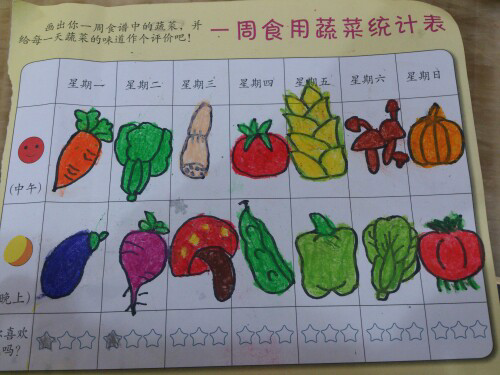 画出你一周食谱中的蔬菜，并
给每一天蔬菜的味道作个评价吧！
一周食用蔬菜统计表
星期一 星期二 星期三 星期四 星期五 星期六 星期日
(中午)
晚上)
喜欢
吗？